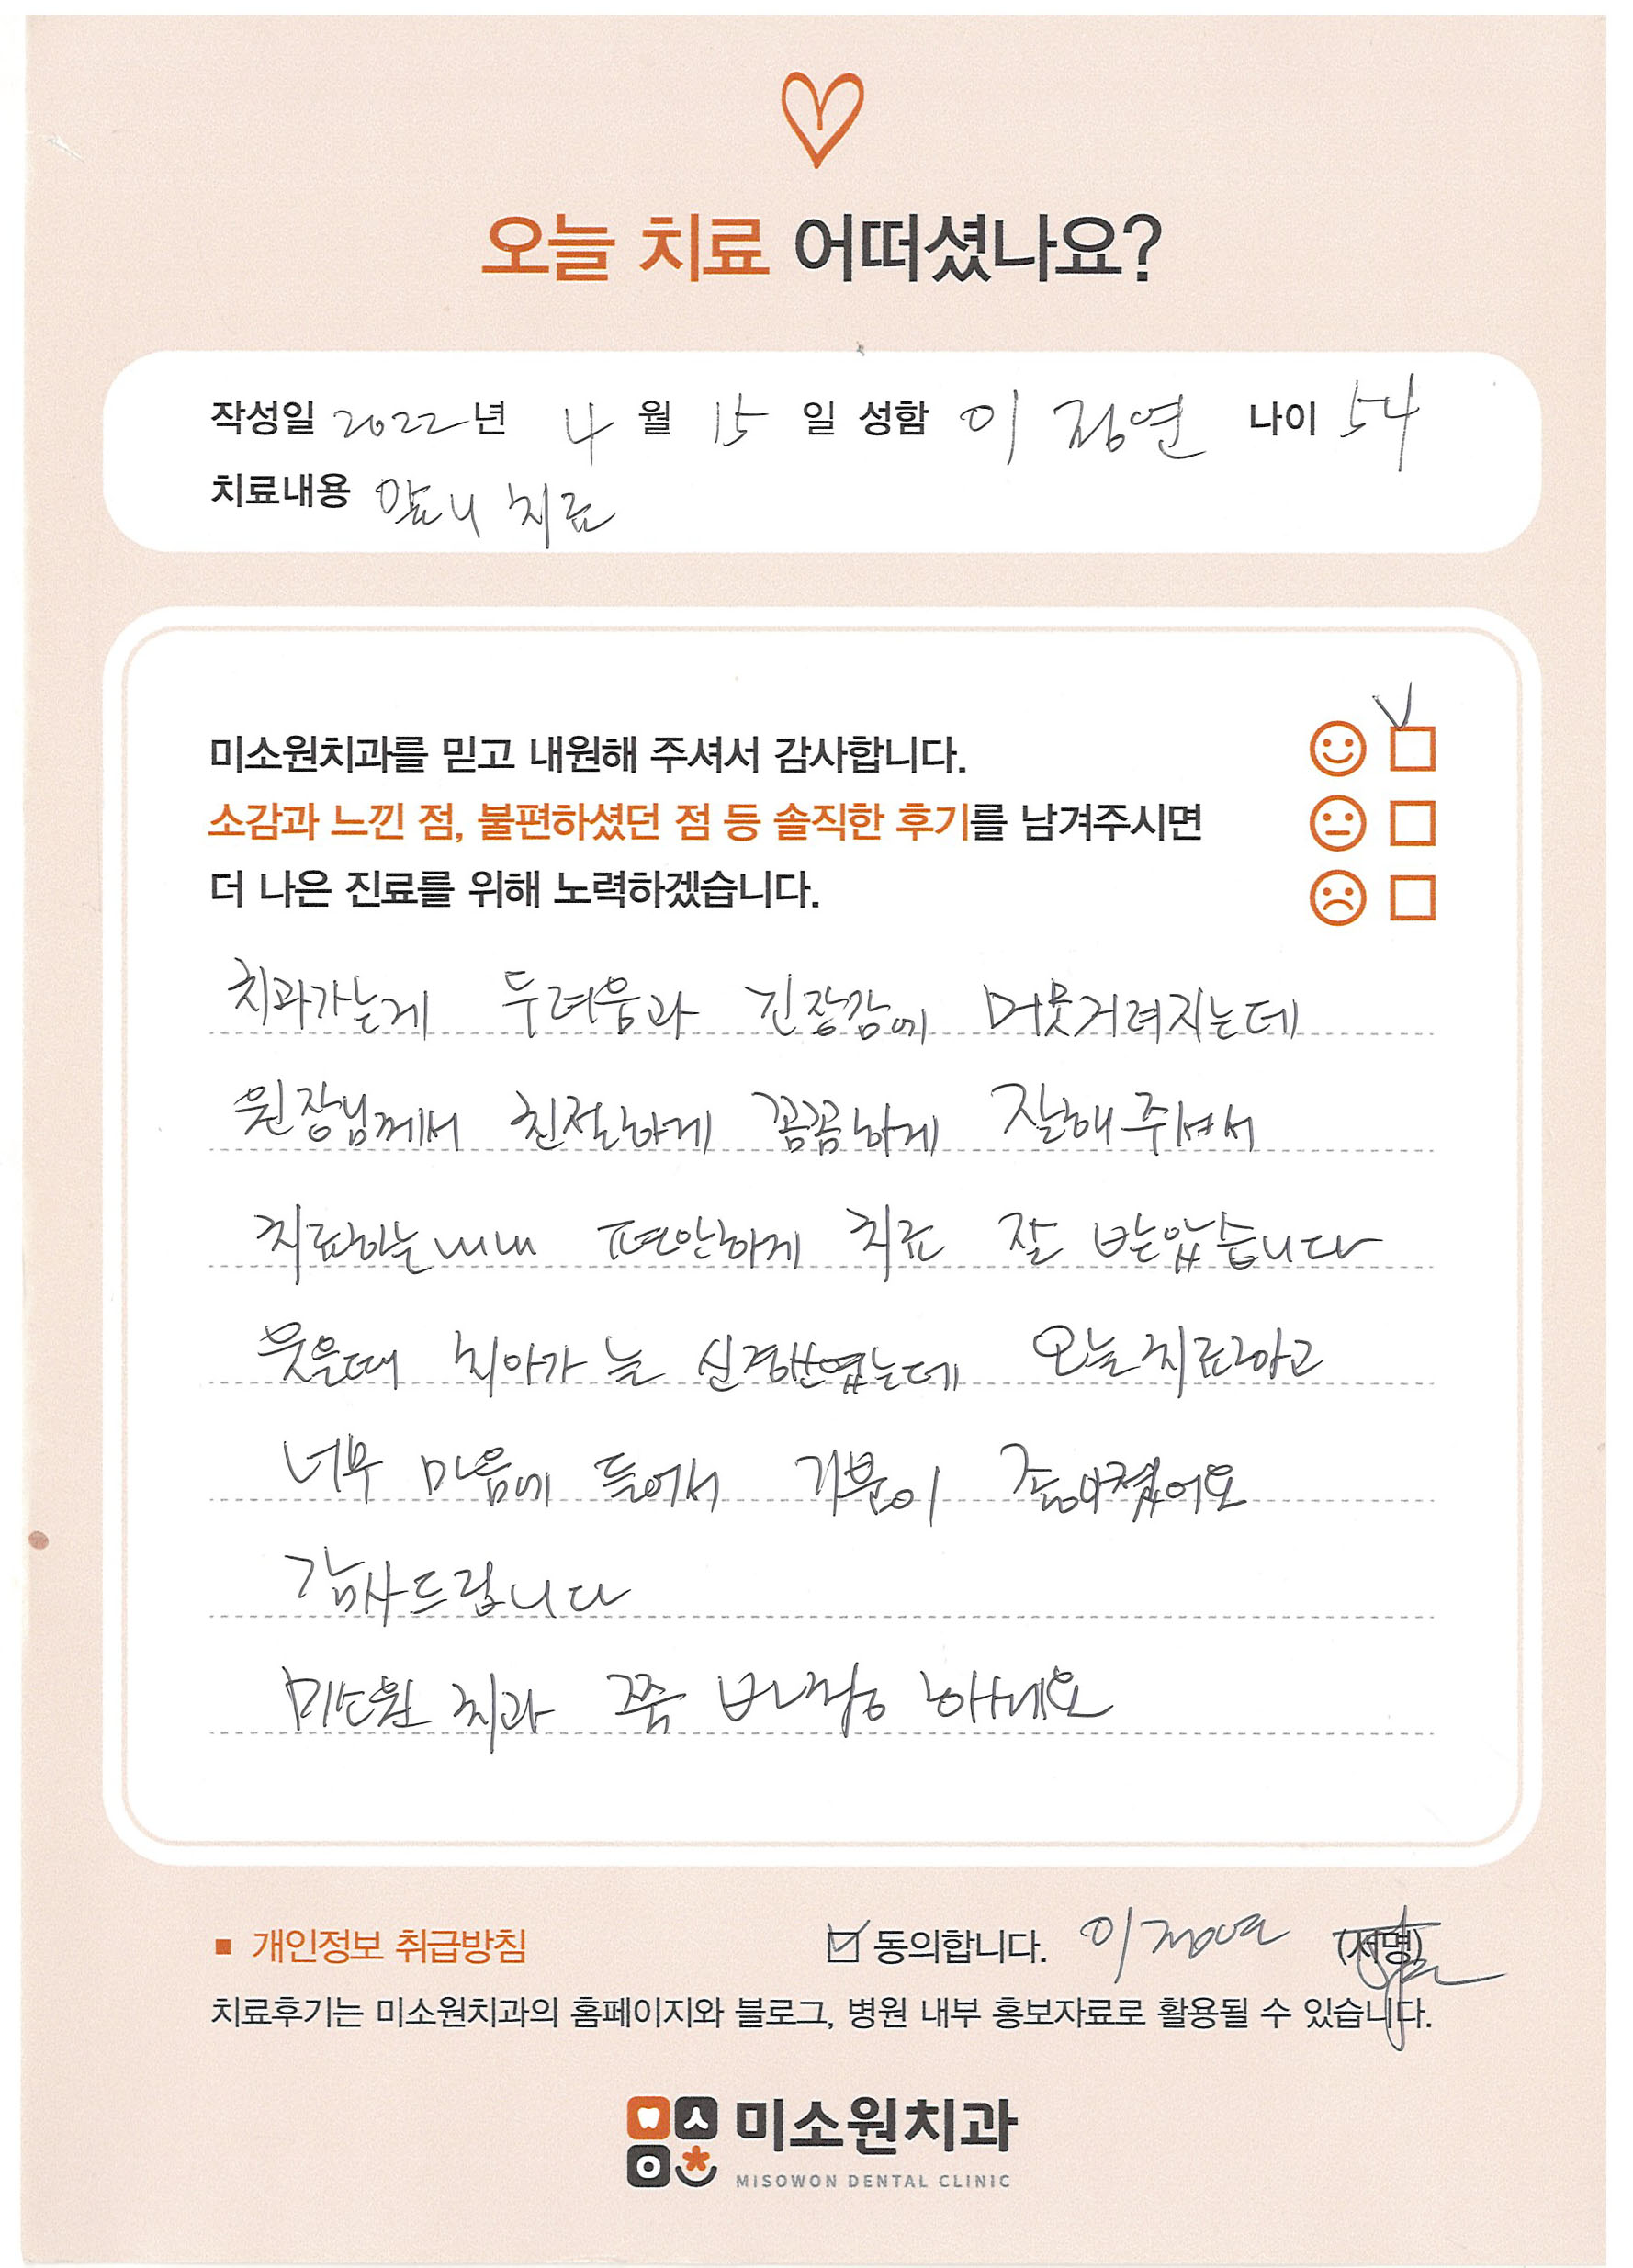 오늘 치료 어떠셨나요?
작성일 2022년 4월 15일 성함 이정연 나이 54
치료내용 앞니 치료
미소원치과를 믿고 내원해 주셔서 감사합니다.
소감과 느낀 점, 불편하셨던 점 등 솔직한 후기를 남겨주시면
더 나은 진료를 위해 노력하겠습니다.
치과가는게 두려움과 긴장감에 머뭇거려지는데
원장님께서 친절하게 꼼꼼하게 잘해주셔서
치료하는내내 편안하게 치료 잘 받았습니다
웃을때 치아가 늘 신경쓰였는데 오늘치료하고
너무 마음에 들어서 기분이 좋아졌어요
감사드립니다
미소원 치과 쭉 번창 하세요
■ 개인정보 취급방침 동의합니다. 이정연 (서명)
치료후기는 미소원치과의 홈페이지와 블로그, 병원 내부 홍보자료로 활용될 수 있습니다.
미소원치과
MISOWON DENTAL CLINIC